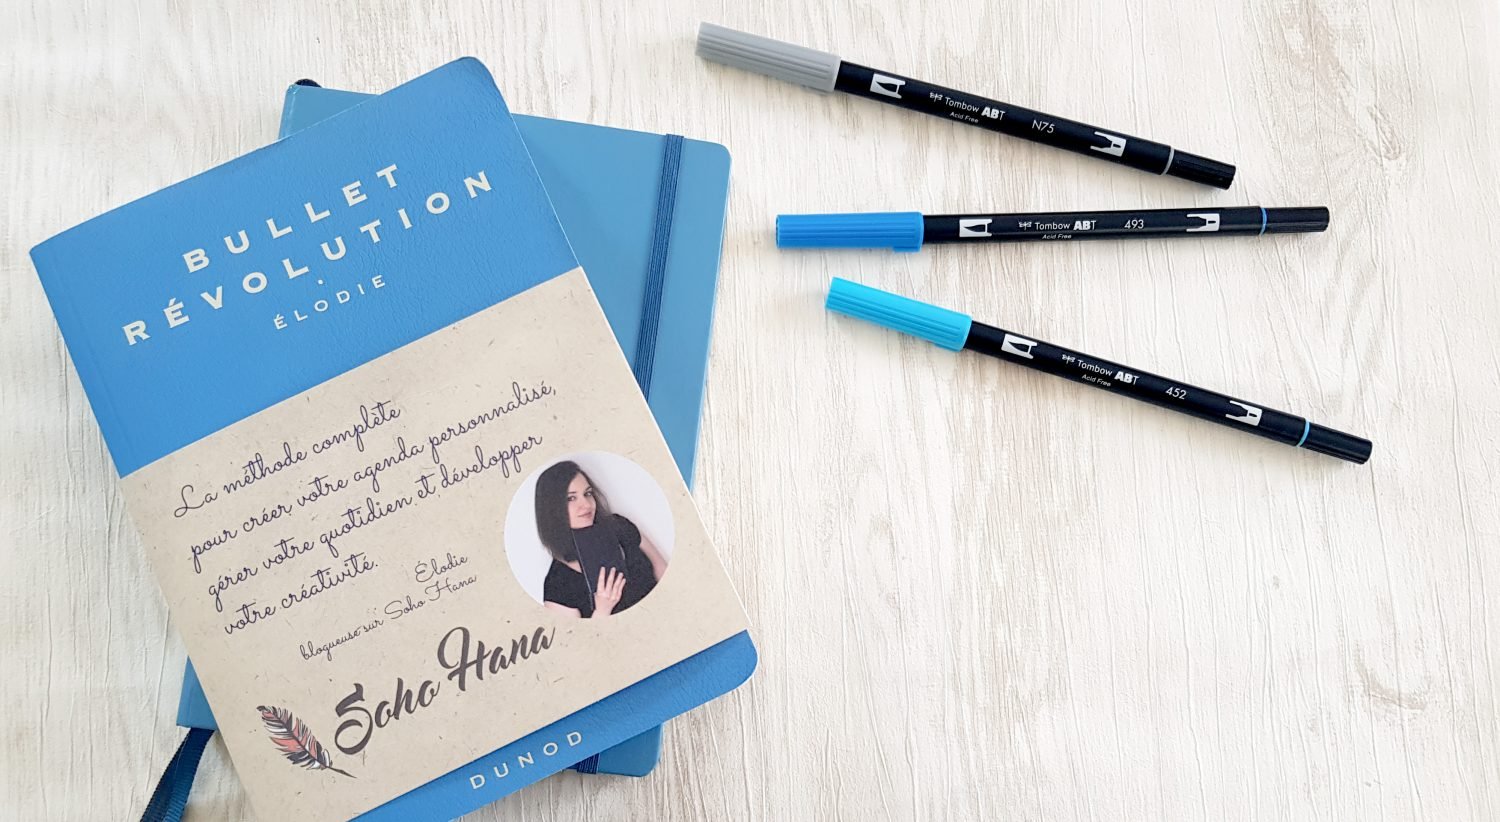 BULLET
RÉVOLUTION
·
ÉLODIE
La méthode complète
pour créer votre agenda personnalisé,
gérer votre quotidien et développer
votre créativité.
Élodie
blogueuse sur Soho Hana
Soho Hana
DUNOD
Tombow ABT N75
Acid Free
Tombow ABT 493
Acid Free
Tombow ABT 452
Acid Free